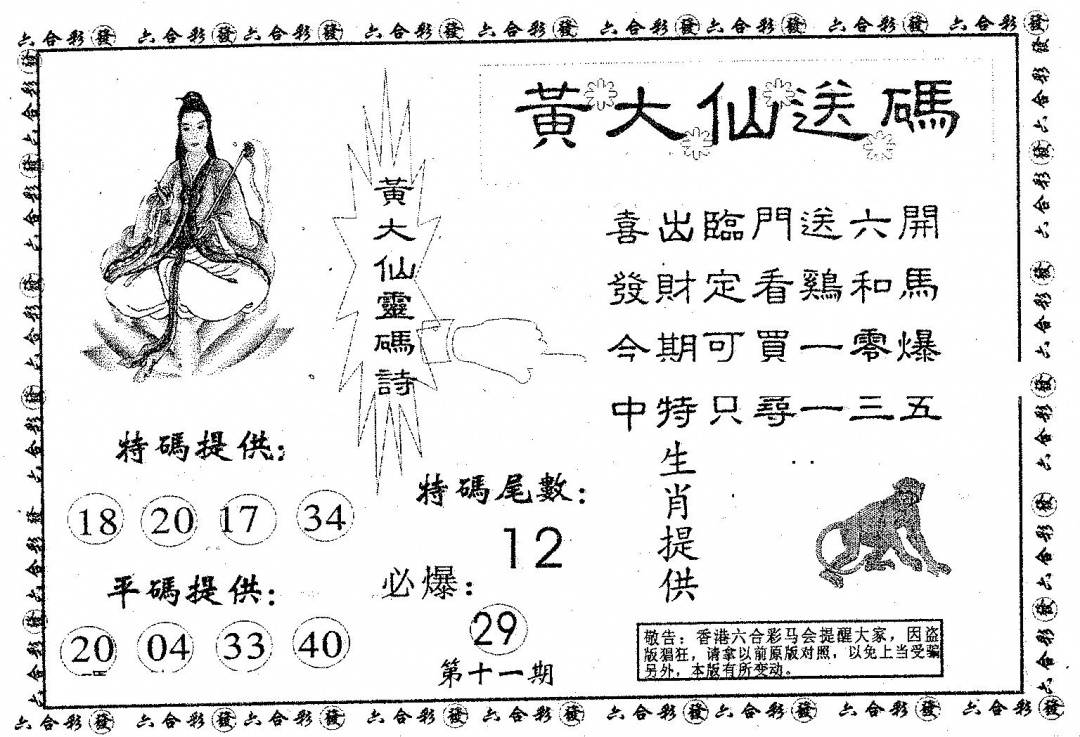 六合彩發 六合彩發 六合彩發 六合彩發 六合彩發 六合彩發 六合彩發 六合彩發 六合彩發
黃大仙送碼
黃大仙靈碼詩
喜出臨門送六開
發財定看鷄和馬
今期可買一零爆
中特只尋一三五
特碼提供:
18 20 17 34
平碼提供:
20 04 33 40
特碼尾數:
12
必爆:
29
第十一期
生肖提供
敬告:香港六合彩马会提醒大家,因盗
版猖狂,请拿以前原版对照,以免上当受骗
另外,本版有所变动。
六合彩發 六合彩發 六合彩發 六合彩發 六合彩發 六合彩發 六合彩發 六合彩發 六合彩發